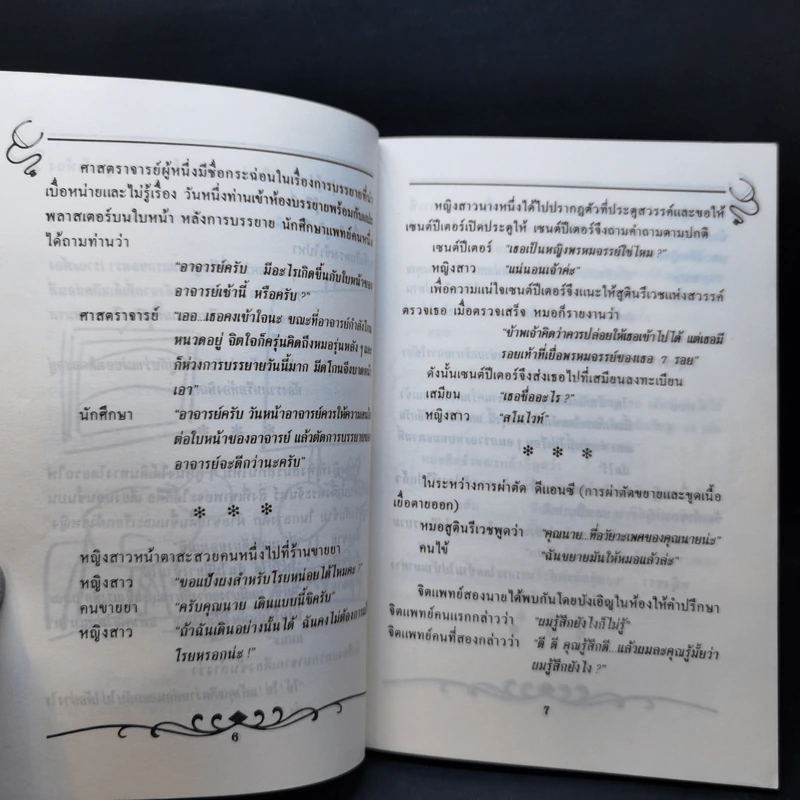 ศาสตราจารย์ผู้หนึ่งมีชื่อกระฉ่อนในเรื่องการบรรยายที่น่า
เบื่อหน่ายและไม่รู้เรื่อง วันหนึ่งท่านเข้าห้องบรรยายพร้อมกับแปะ
พลาสเตอร์บนใบหน้า หลังการบรรยาย นักศึกษาแพทย์คนหนึ่ง
ได้ถามท่านว่า
"อาจารย์ครับ มีอะไรเกิดขึ้นกับใบหน้าของ
อาจารย์เช้านี้ หรือครับ?"
ศาสตราจารย์ "เออ...เธอคงเข้าใจนะ ขณะที่อาจารย์กำลังโกน
หนวดอยู่ จิตใจก็ครุ่นคิดถึงหมอรุ่นหลัง ๆ และ
ก็ห่วงการบรรยายวันนี้มาก มีดโกนจึงบาดหน้า
เอา"
นักศึกษา "อาจารย์ครับ วันหน้าอาจารย์ควรให้ความสนใจ
ต่อใบหน้าของอาจารย์ แล้วตัดการบรรยายของ
อาจารย์จะดีกว่านะครับ"
* * *
หญิงสาวหน้าตาสะสวยคนหนึ่งไปที่ร้านขายยา
หญิงสาว "ขอแป้งผงสำหรับโรยหน่อยได้ไหมคะ?"
คนขายยา "ครับคุณนาย เดินแบบนี้ซิครับ"
หญิงสาว "ถ้าฉันเดินอย่างนั้นได้ ฉันคงไม่ต้องการแป้ง
โรยหรอกน่ะ!"
6
หญิงสาวนางหนึ่งได้ไปปรากฏตัวที่ประตูสวรรค์และขอให้
เซนต์ปีเตอร์เปิดประตูให้ เซนต์ปีเตอร์จึงถามคำถามตามปกติ
เซนต์ปีเตอร์ "เธอเป็นหญิงพรหมจรรย์ใช่ไหม?"
หญิงสาว "แน่นอนเจ้าค่ะ"
เพื่อความแน่ใจเซนต์ปีเตอร์จึงแนะให้สูตินรีเวชแห่งสวรรค์
ตรวจเธอ เมื่อตรวจเสร็จ หมอก็รายงานว่า
"ข้าพเจ้าคิดว่าควรปล่อยให้เธอเข้าไปได้ แต่เธอมี
รอยเท้าที่เยื่อพรหมจรรย์ของเธอ 7 รอย"
ดังนั้นเซนต์ปีเตอร์จึงส่งเธอไปที่เสมียนลงทะเบียน
เสมียน "เธอชื่ออะไร?"
หญิงสาว "สโนไวท์"
* * *
ในระหว่างการผ่าตัด ดีแอนซี (การผ่าตัดขยายและขูดเนื้อ
เยื่อตายออก)
หมอสูตินรีเวชพูดว่า "คุณนาย...ที่อวัยวะเพศของคุณนายน่ะ"
คนไข้ "ฉันขยายมันให้หมอแล้วล่ะ"
จิตแพทย์สองนายได้พบกันโดยบังเอิญในห้องให้คำปรึกษา
จิตแพทย์คนแรกกล่าวว่า "ผมรู้สึกยังไงก็ไม่รู้"
จิตแพทย์คนที่สองกล่าวว่า "ดี ดี คุณรู้สึกดี...แล้วผมละคุณรู้มั้ยว่า
ผมรู้สึกยังไง?"
7